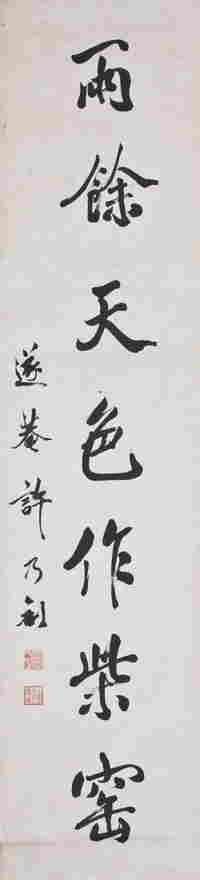 雨餘天色作柴窑
遂菴許乃釗